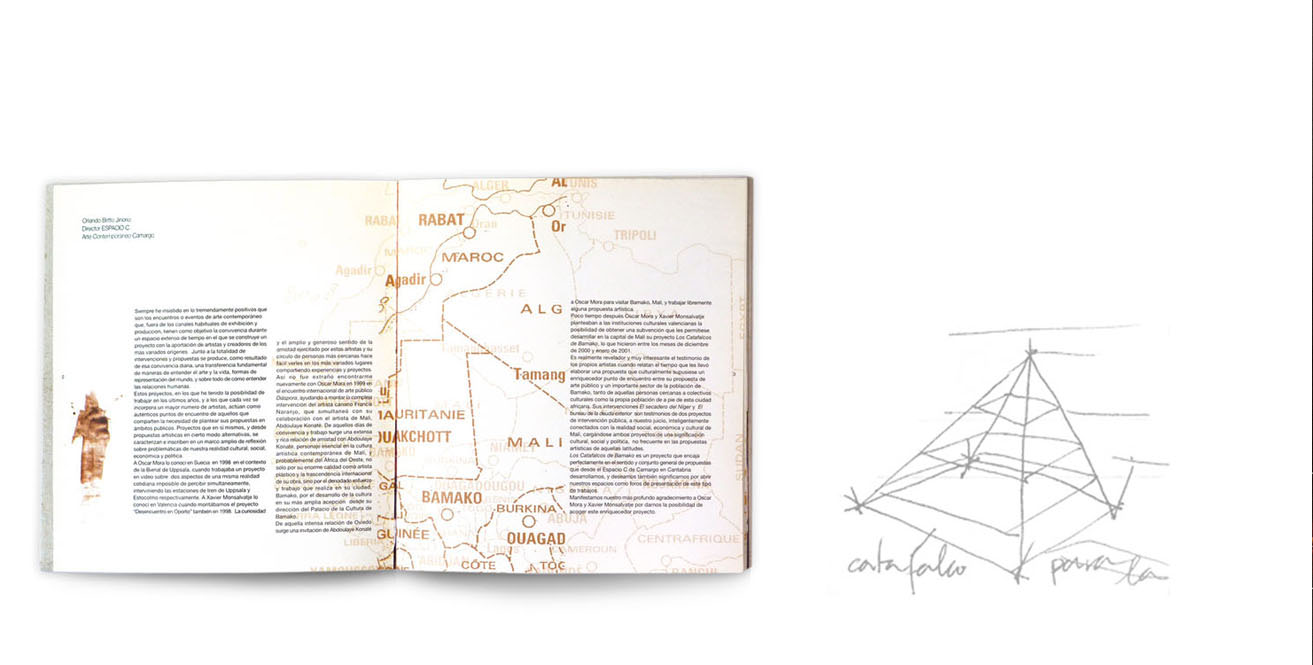 Orlando Britto Jinorio
Director ESPACIO C
Arte Contemporáneo Camargo
Siempre he insistido en lo tremendamente positivas que
son los encuentros o eventos de arte contemporáneo
que, fuera de los canales habituales de exhibición y
produccion, tienen como objetivo la convivencia durante
un espacio externo de tiempo en el que se construye un
proyecto con la aportación de artistas y creadores de los
más variados orígenes. Junto a la totalidad de
intervenciones y propuestas se produce, como resultado
de esa convivencia diana, una transferencia fundamental
de maneras de entender el arte y la vida, formas de
representación del mundo, y sobre todo de como entender
las relaciones humanas.
Estos proyectos, en los que he tenido la posibilidad de
trabajar en los últimos años, y a los que cada vez se
incorpora un mayor numero de artistas, actúan como
auténticos puntos de encuentro de aquellos que
comparten la necesidad de plantear sus propuestas en
ámbitos publicos. Proyectos que en si mismos, y desde
propuestas artísticas en cierto modo alternativas, se
caracterizan e inscriben en un marco amplio de reflexión
sobre problemáticas de nuestra realidad cultural, social,
económica y política.
A Oscar Mora lo conocí en Suecia en 1998 en el contexto
de la Bienal de Uppsala, cuando trabajaba un proyecto
en video sobre dos aspectos de una misma realidad
cotidiana imposible de percibir simultaneamente,
interviniendo las estaciones de tren de Uppsala y
Estocolmo respectivamente. A Xavier Monsalvatje lo
conocí en Valencia cuando montábamos el proyecto
"Desencuentro en Oporto" tambien en 1998. La curiosidad
y el amplio y generoso sentido de la
amistad ejercitado por estas artistas y su
círculo de personas más cercanas hace
fácil verles en los más variados lugares
compartiendo experiencias y proyectos.
Así no fue extraño encontrarme
nuevamente con Oscar Mora en 1999 en
el encuentro internacional de arte público
Diáspora, ayudando a montar la compleja
intervención del artista canario Francis
Naranjo, que simultaneó con su
colaboración con el artista de Mali,
Abdoulaye Konaté. De aquellos días de
convivencia y trabajo surge una extensa
y rica relación de amistad con Abdoulaye
Konaté, personaje esencial en la cultura
artística contemporánea de Mali,
probablemente del África del Oeste, no
sólo por su enorme calidad como artista
plástico y la trascendencia internacional
de su obra, sino por el denodado esfuerzo
y trabajo que realiza en su ciudad,
Bamako, por el desarrollo de la cultura
en su más amplia acepción desde su
dirección del Palacio de la Cultura de
Bamako.
De aquella intensa relación de Oviedo
surge una invitación de Abdoulaye Konaté
a Oscar Mora para visitar Bamako, Mali, y trabajar libremente
alguna propuesta artística.
Poco tiempo después Oscar Mora y Xavier Monsalvatje
planteaban a las instituciones culturales valencianas la
posibilidad de obtener una subvención que les permitiese
desarrollar en la capital de Mali su proyecto Los Catafalcos
de Bamako, lo que hicieron entre los meses de diciembre
de 2000 y enero de 2001.
Es realmente revelador y muy interesante el testimonio de
los propios artistas cuando relatan el tiempo que les llevó
elaborar una propuesta que culturalmente supusiese un
enriquecedor punto de encuentro entre su propuesta de
arte público y un importante sector de la población de
Bamako, tanto de aquellas personas cercanas a colectivos
culturales como la propia población de a pie de esta ciudad
africana. Sus intervenciones El secadero del Níger y El
bureau de la deuda exterior son testimonios de dos proyectos
de intervención pública, a nuestro juicio, inteligentemente
conectados con la realidad social, económica y cultural de
Mali, cargándose ambos proyectos de una significación
cultural, social y política, no frecuente en las propuestas
artísticas de aquellas latitudes.
Los Catafalcos de Bamako es un proyecto que encaja
perfectamente en el sentido y conjunto general de propuestas
que desde el Espacio C de Camargo en Cantabria
desarrollamos, y deseamos también significarnos por abrir
nuestros espacios como foros de presentación de este tipo
de trabajos.
Manifestamos nuestro más profundo agradecimiento a Oscar
Mora y Xavier Monsalvatje por darnos la posibilidad de
acoger este enriquecedor proyecto.
ALGER
AL
TUNIS
RABA
RABAT
Oran
Or
TUNISIE
TRIPOLI
MAROC
MAROC
Agadir
Agadir
GERIE
ALG
Tamanrasset
Tamang
MAURITANIE
OUAKCHOTT
MALI
NIAMEY
GAL
OUAGADOUGOU
BAMAKO
BURKINA
ABUJA
SOUDAN
SIERRA LEONE
GUINÉE
OUAGAD
CENTRAFRIQUE
LIBERIA
Lagos
CAMEROUN
YAMOUSSO
ABIDJAN
CÔTE
TOG
BANGUI
catafalco para la